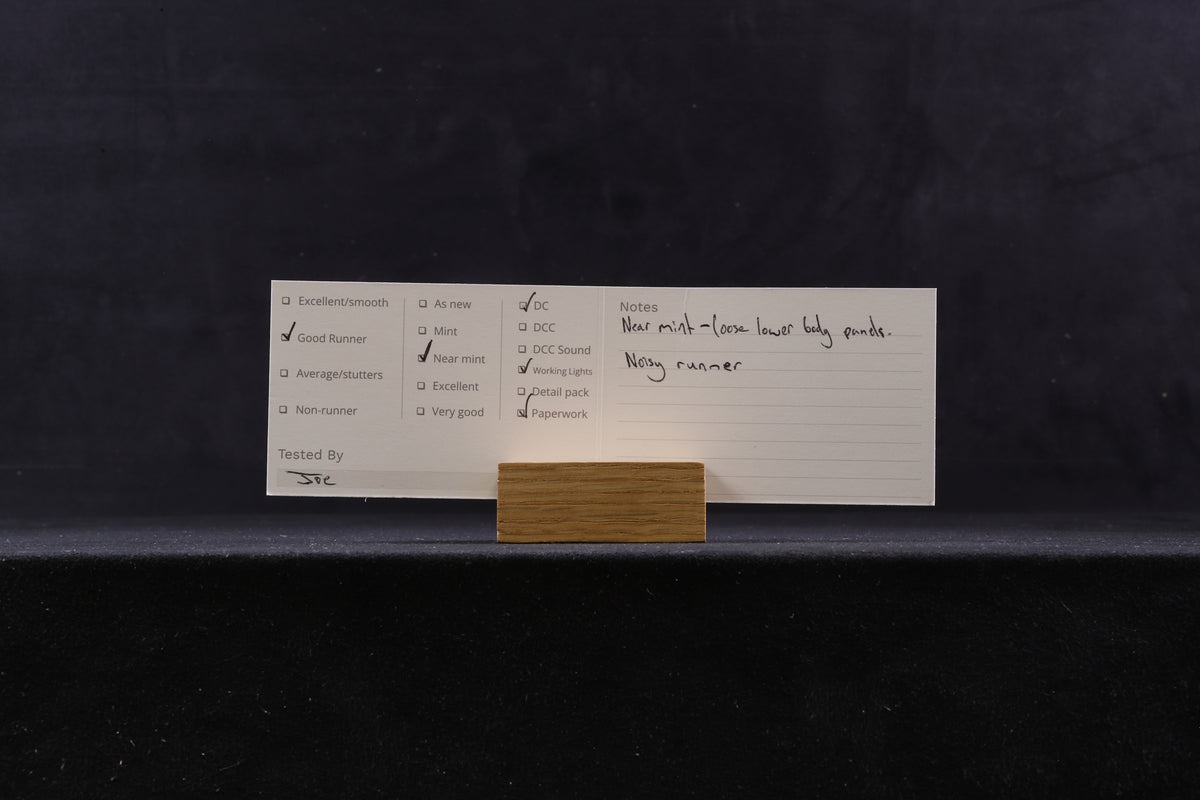 Excellent/smooth
Good Runner
Average/stutters
Non-runner
Tested By
Joe
As new
Mint
Near mint
Excellent
Very good
DC
DCC
DCC Sound
Working Lights
Detail pack
Paperwork
Notes
Near mint - loose lower body panels.
Noisy runner